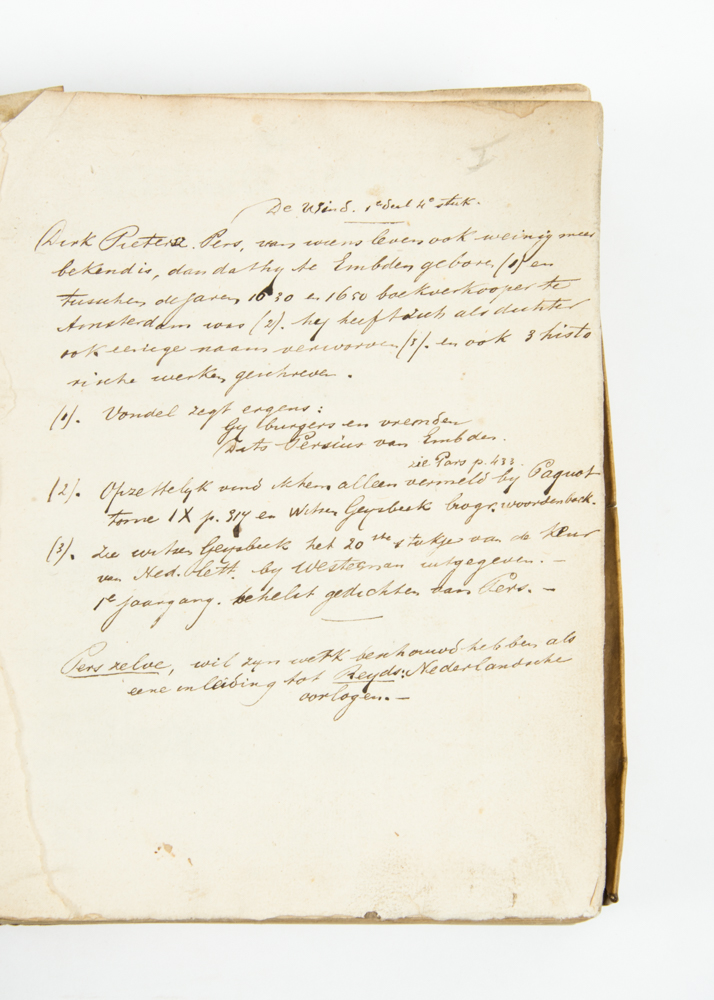 De Wind. 1e deel 4e stuk.
Dirk Pietersz. Pers, van wiens leven ook weinig meer
bekend is, dan dat hy te Embden geboren (1) en
tusschen de jaren 1630 en 1650 boekverkooper te
Amsterdam was (2). hy heeft zich als dichter
ook eenige naam verworven (3). en ook 3 histo
rische werken geschreven.
(1). Vondel zegt ergens:
Gy burgers en vremden
Dats Persius van Embden.
zie Pars p. 433.
(2). Opzettelyk vind ik hem alleen vermeld by Paquot
tome IX p. 314 en Witsen Geysbeek biogr. woordenboek.
(3). Zie witsen Geysbeek het 20ste stukje van de keur
van Ned. Lett. by Westerman uitgegeven. —
1e jaargang. behelst gedichten van Pers. —
Pers zelve, wil zyn werk beschouwd hebben als
eene inleiding tot Reyds: Nederlandsche
oorlogen. —